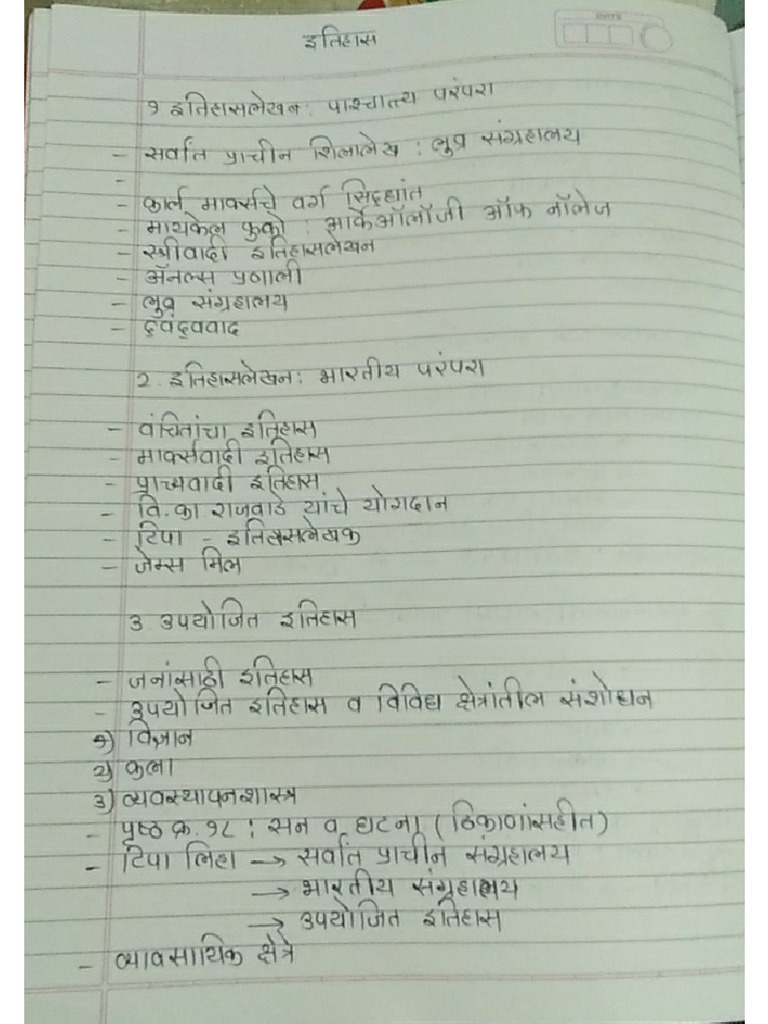 इतिहास
१ इतिहासलेखन: पाश्चात्त्य परंपरा
- सर्वांत प्राचीन शिलालेख : लुव्र संग्रहालय
-
- कार्ल मार्क्सचे वर्ग सिद्धांत
- मायकेल फुको : आर्केऑलॉजी ऑफ नॉलेज
- स्त्रीवादी इतिहासलेखन
- ॲनल्स प्रणाली
- लुव्र संग्रहालय
- द्वंद्ववाद
२. इतिहासलेखन: भारतीय परंपरा
- वंचितांचा इतिहास
- मार्क्सवादी इतिहास
- प्राच्यवादी इतिहास
- वि.का राजवाडे यांचे योगदान
- टिपा - इतिहासलेखक
- जेम्स मिल
३. उपयोजित इतिहास
- जनांसाठी इतिहास
- उपयोजित इतिहास व विविध क्षेत्रांतील संशोधन
१) विज्ञान
२) कला
३) व्यवस्थापनशास्त्र
- पृष्ठ क्र. १८ : सन व घटना (ठिकाणांसहीत)
- टिपा लिहा → सर्वांत प्राचीन संग्रहालय
→ भारतीय संग्रहालय
→ उपयोजित इतिहास
- व्यावसायिक क्षेत्रे